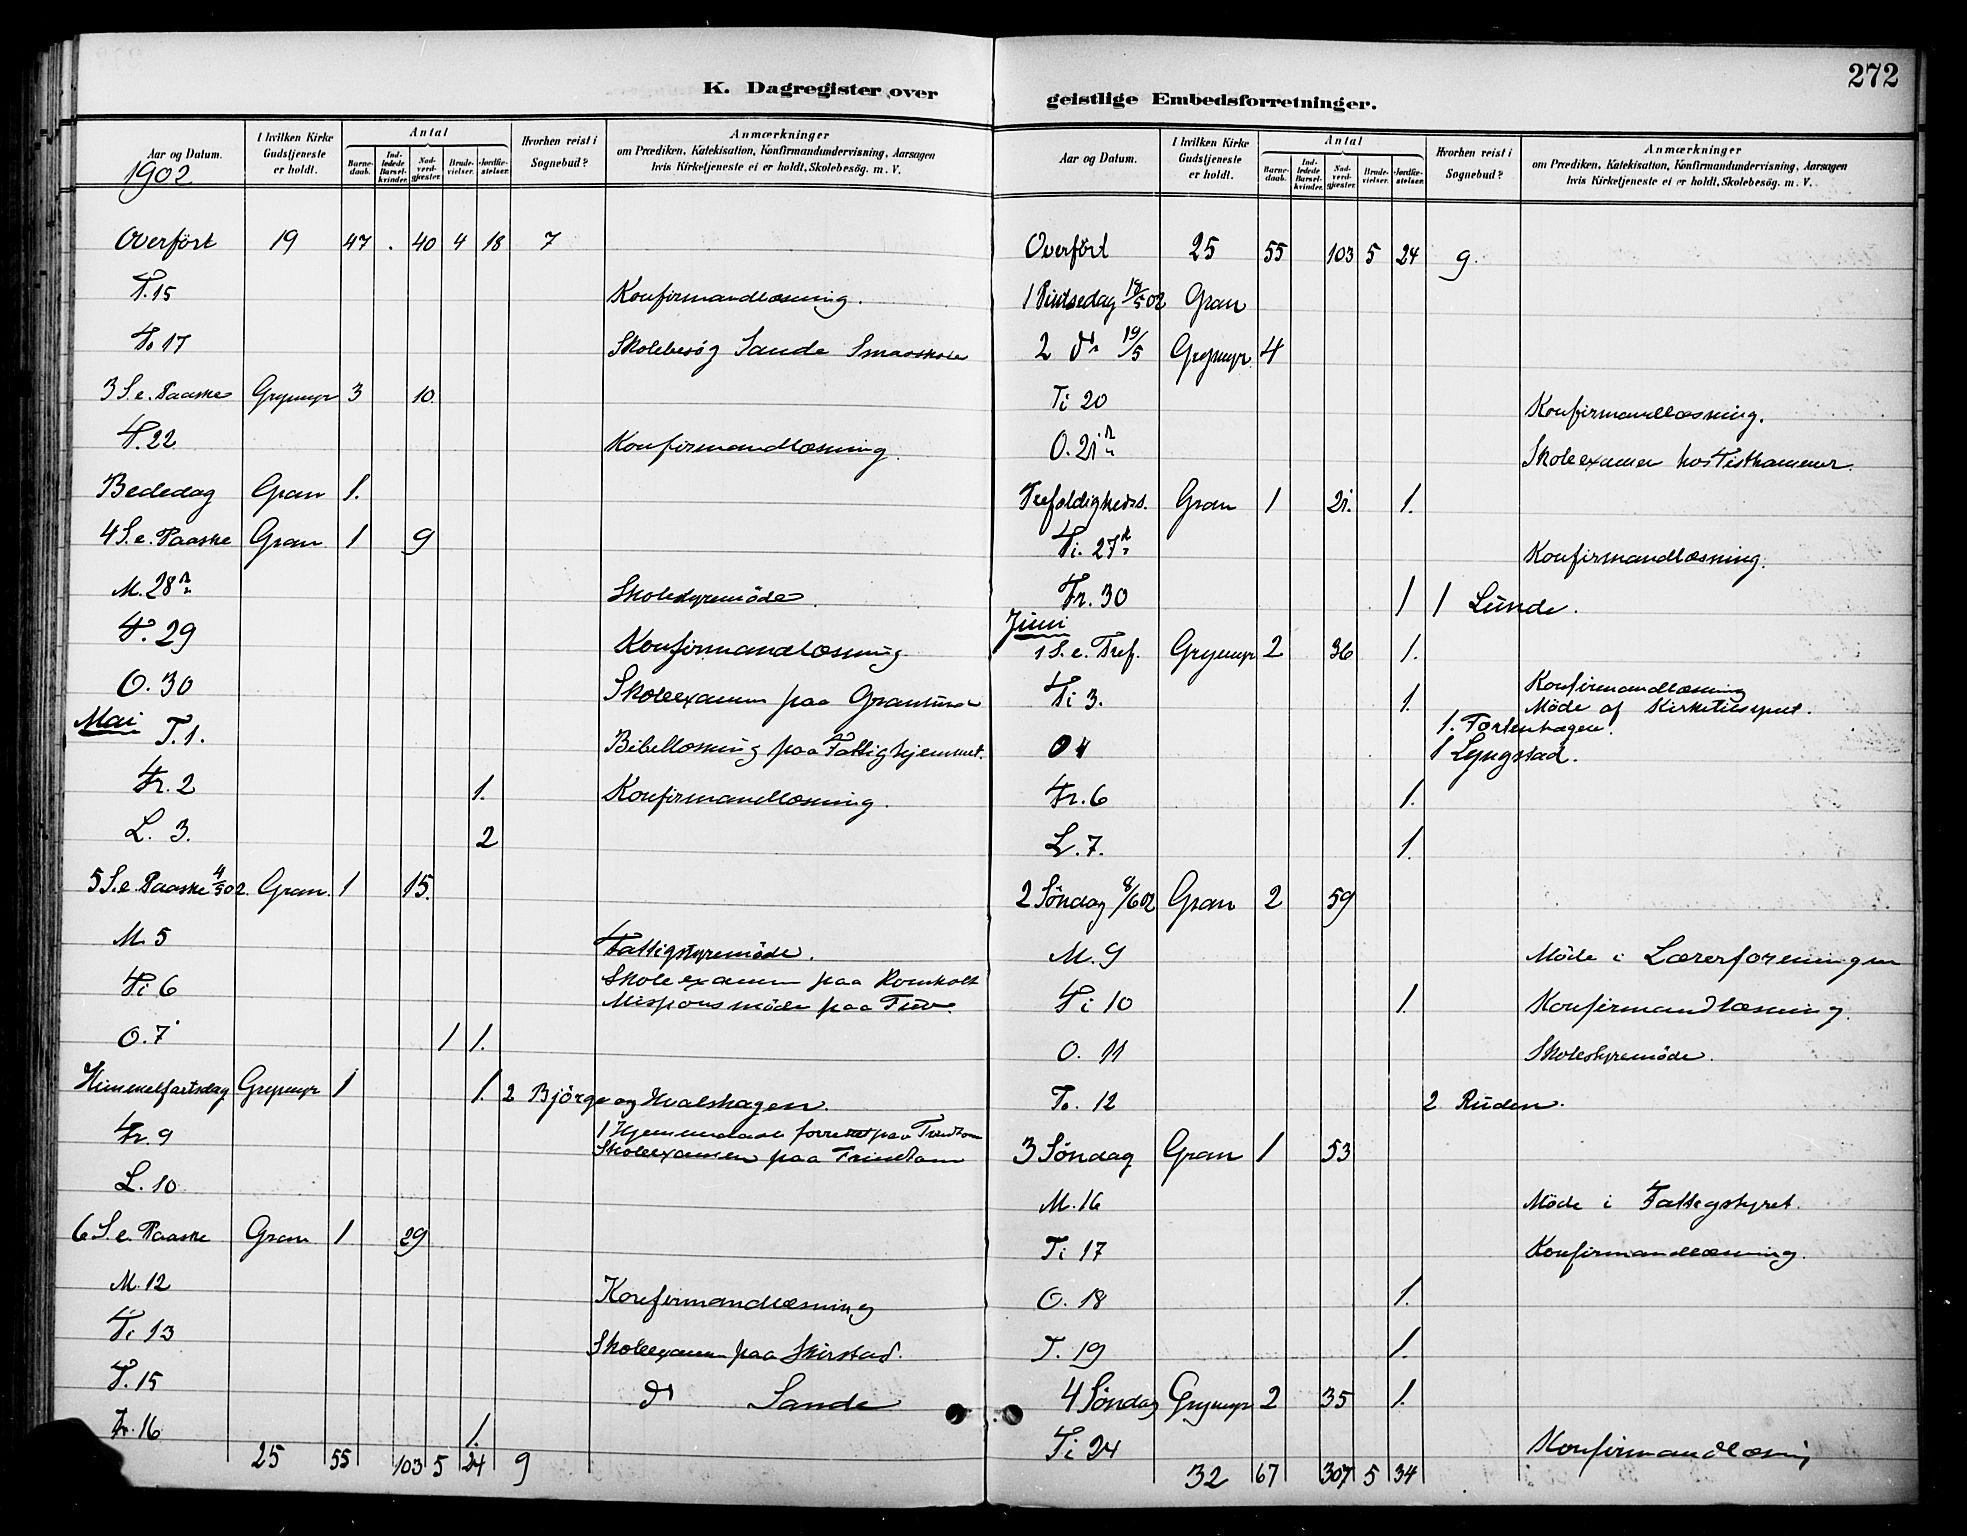 K. Dagregister over
Aar og Datum. I hvilken Kirke Gudstjeneste er holdt. Antal Barnedaab. Indledede Barselkvinder. Nadverdgjæster. Brudevielser. Jordfæstelser. Hvorhen reist i Sognebud? Anmærkninger om Prædiken, Katekisation, Konfirmandundervisning, Aarsagen hvis Kirketjeneste ei er holdt, Skolebesøg. m. V.
1902
Overført 19 47 . 40 4 18 7
T. 15 Konfirmandlæsning.
To 17 Skolebesøg Sande Smaaskole
3 S. e. Paaske Grymyr 3 10
T. 22 Konfirmandlæsning.
Bededag Gran 1.
4 S. e. Paaske Gran 1 9
M. 28 Skolestyremöde.
T. 29 Konfirmandlæsning
O. 30 Skoleexamen paa
Mai
T. 1. Bibellæsning paa Fattighjemmet.
Fr. 2 1. Konfirmandlæsning.
L. 3. 2
5 S. e. Paaske 4/5 02. Gran. 1 15.
M. 5 Fattigstyremöde.
Ti 6 Skoleexamen paa
Missionsmöde paa
O. 7 1 1.
Himmelfartsdag Grymyr 1 1. 2 Björge og Hvalshagen.
Fr. 9 1 Hjemmedaab forrettet paa
Skoleexamen paa
L. 10
6 S. e. Paaske Gran 1 29
M. 12 Konfirmandlæsning
Ti 13 Skoleexamen paa Skirstad.
T. 15 do Sande
Fr. 16 1.
25 55 103 5 24 9
272
geistlige Embedsforretninger.
Aar og Datum. I hvilken Kirke Gudstjeneste er holdt. Antal Barnedaab. Indledede Barselkvinder. Nadverdgjæster. Brudevielser. Jordfæstelser. Hvorhen reist i Sognebud? Anmærkninger om Prædiken, Katekisation, Konfirmandundervisning, Aarsagen hvis Kirketjeneste ei er holdt, Skolebesøg. m. V.
Overført 25 55 103 5 24 9.
1 Pintsedag 18/5 02 Gran
2 do 19/5 Grymyr 4
Ti 20 Konfirmandlæsning.
O. 21 Skoleexamen hos Tisthammer.
Trefoldigheds. Gran 1 21. 1.
Ti. 27 Konfirmandlæsning.
Fr. 30 1 1 Lunde.
Juni
1 S. e. Tref. Grymyr 2 36 1.
Ti 3. 1. Konfirmandlæsning
Möde af Kirketilsynet.
O 4 1. Tortenhagen.
1 Lyngstad.
Fr. 6 1.
L. 7. 1.
2 Søndag 8/6 02 Gran 2 59
M. 9 Möde i Lærerforeningen
Ti 10 1. Konfirmandlæsning.
O. 11 Skolestyremöde.
To. 12 2 Ruden.
3 Søndag Gran 1 53
M. 16 Möde i Fattigstyret.
Ti 17 Konfirmandlæsning.
O. 18 1.
T. 19 1.
4 Søndag Grymyr 2 35 1.
Ti 24 Konfirmandlæsning
32 67 307 5 34